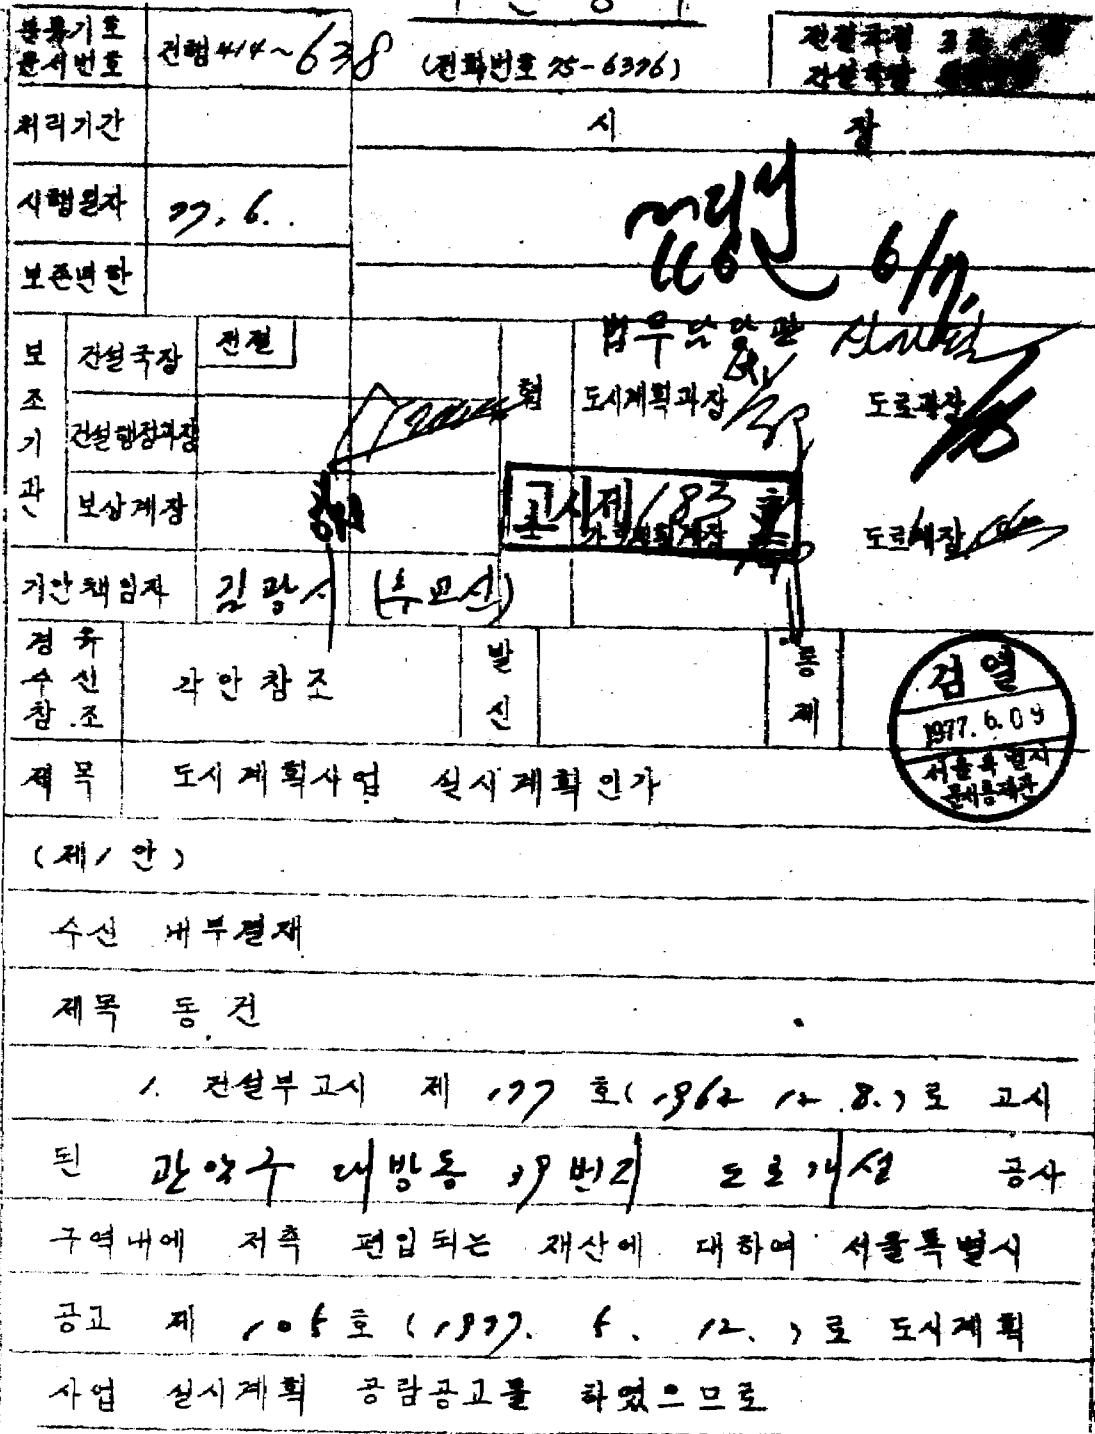 분류기호
문서번호 건행 414~638 (전화번호 75-6376)
전결규정
처리기간 시 장
시행일자 77. 6. .
보존연한 6/9.
법무담당관
보조기관 건설국장 전결
협 도시계획과장 도로과장
건설행정과장
보상계장 고시제183호
도로계장
기안책임자 김광시 (추교선)
경유
수신 각안참조 발신 통제
참조
검열
1977. 6. 09
서울특별시
문서통제관
제목 도시계획사업 실시계획인가
(제1안)
수신 내부결재
제목 동건
1. 건설부고시 제 177 호(1962 12. 8.)로 고시
된 관악구 대방동 39번지 도로개설 공사
구역내에 저촉 편입되는 재산에 대하여 서울특별시
공고 제 105호 (1977. 5. 12.)로 도시계획
사업 실시계획 공람공고를 하였으므로